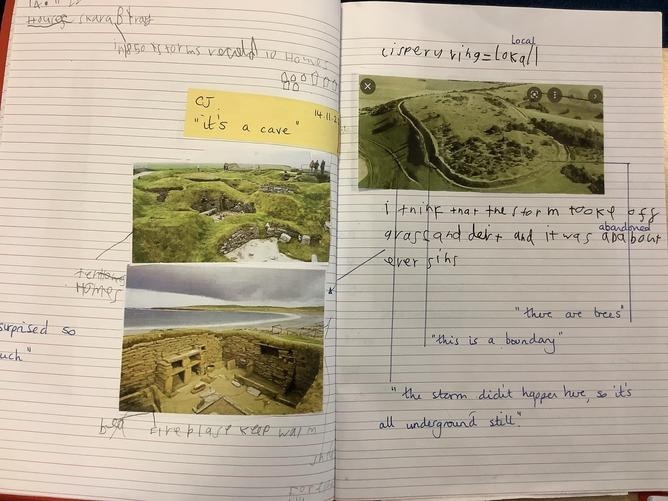 Houses skara Bray
in 1850 storms reveald 10 Homes
CJ.
14.11.2
"it's a cave"
Homes
surprised so
uch"
bed
Fireplase keep warm
Local
cispery ring = Lokall
i think that the storm tooke off
abandoned
grass and dert and it was anabout
ever sins
"there are trees"
"this is a boundary"
"the storm didn't happen here, so it's
all underground still."